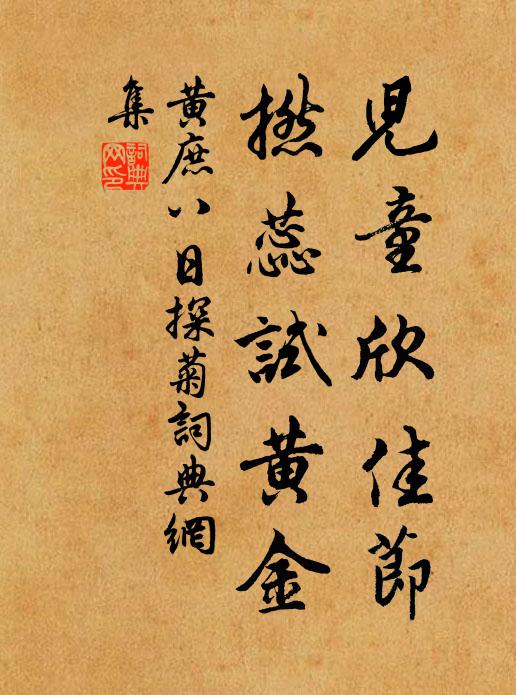 兒童欣佳節
撚蕊試黃金
黃庶八日探菊詞典網
集
詞典
网印